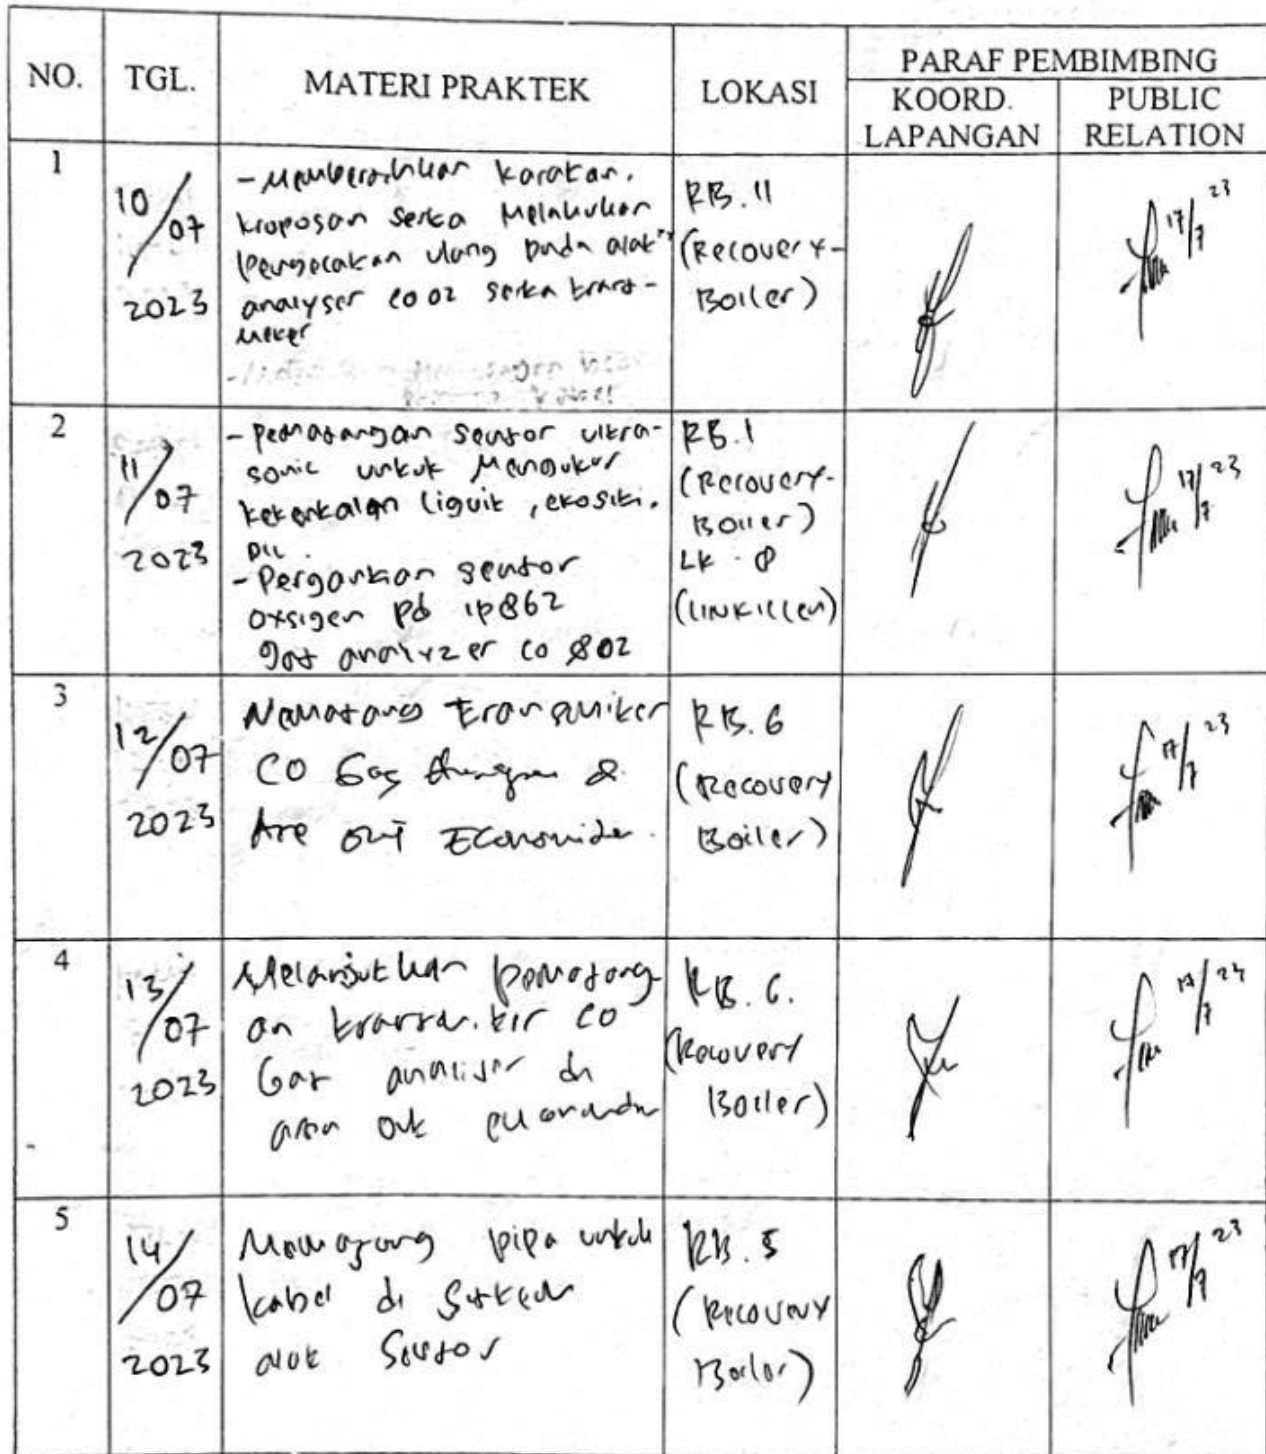 NO. TGL. MATERI PRAKTEK LOKASI PARAF PEMBIMBING
KOORD. LAPANGAN PUBLIC RELATION
1
10/07
2023
- Membersihkan karatan,
kroposan serta Melakukan
pengecekan ulang pada alat"
analyser CO O2 serta trans-
miter
RB. 11
(Recovery-
Boiler)
17/7 23
2
11/07
2023
- pemasangan sensor ultra-
sonic untuk Mengukur
ketentalan liquit,
DLL.
- Pergantian sensor
oxsigen pd
gas analyzer CO & O2
RB. 1
(Recovery-
Boiler)
LK. 8
(LINKILLEN)
17/7 23
3
12/07
2023
Memasang Transmiter
CO Gas &
Are out Economider.
RB. 6
(Recovery
Boiler)
17/7 23
4
13/07
2023
Melanjutkan pemasang
an CO
Gas analiser di
area out
RB. 6.
(Recovery
Boiler)
17/7 23
5
14/07
2023
Memasang pipa untuk
kabel di
alat Sensor
RB. 5
(Recovery
Boiler)
17/7 23